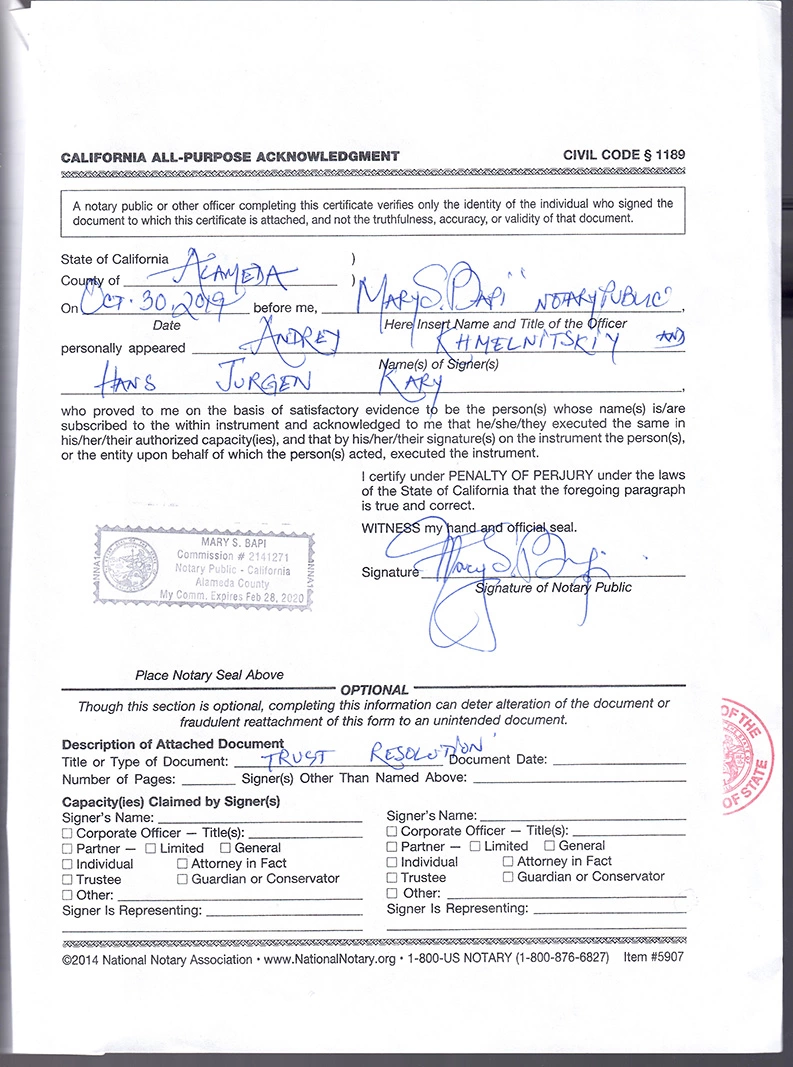 CALIFORNIA ALL-PURPOSE ACKNOWLEDGMENT CIVIL CODE § 1189
A notary public or other officer completing this certificate verifies only the identity of the individual who signed the
document to which this certificate is attached, and not the truthfulness, accuracy, or validity of that document.
State of California )
County of ALAMEDA )
On OCT. 30, 2019 before me, MARY S. BAPI "NOTARY PUBLIC",
Date Here Insert Name and Title of the Officer
personally appeared ANDREY KHMELNITSKIY AND
Name(s) of Signer(s)
HANS JURGEN KARY,
who proved to me on the basis of satisfactory evidence to be the person(s) whose name(s) is/are
subscribed to the within instrument and acknowledged to me that he/she/they executed the same in
his/her/their authorized capacity(ies), and that by his/her/their signature(s) on the instrument the person(s),
or the entity upon behalf of which the person(s) acted, executed the instrument.
I certify under PENALTY OF PERJURY under the laws
of the State of California that the foregoing paragraph
is true and correct.
WITNESS my hand and official seal.
MARY S. BAPI
Commission # 2141271
Notary Public - California
Alameda County
My Comm. Expires Feb 28, 2020
Signature Mary S. Bapi
Signature of Notary Public
Place Notary Seal Above
OPTIONAL
Though this section is optional, completing this information can deter alteration of the document or
fraudulent reattachment of this form to an unintended document.
Description of Attached Document
Title or Type of Document: TRUST RESOLUTION Document Date:
Number of Pages: Signer(s) Other Than Named Above:
OF THE
OF STATE
Capacity(ies) Claimed by Signer(s)
Signer's Name: Signer's Name:
☐ Corporate Officer — Title(s): ☐ Corporate Officer — Title(s):
☐ Partner — ☐ Limited ☐ General ☐ Partner — ☐ Limited ☐ General
☐ Individual ☐ Attorney in Fact ☐ Individual ☐ Attorney in Fact
☐ Trustee ☐ Guardian or Conservator ☐ Trustee ☐ Guardian or Conservator
☐ Other: ☐ Other:
Signer Is Representing: Signer Is Representing:
©2014 National Notary Association • www.NationalNotary.org • 1-800-US NOTARY (1-800-876-6827) Item #5907